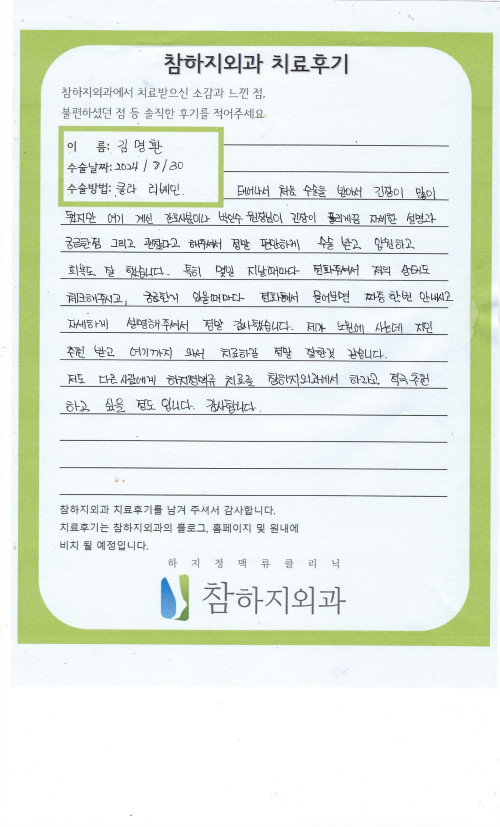 참하지외과 치료후기
참하지외과에서 치료받으신 소감과 느낀 점,
불편하셨던 점 등 솔직한 후기를 적어주세요
이 름: 김명환
수술날짜: 2024 / 8 / 30
수술방법: 클라리베인.
태어나서 처음 수술을 받아서 긴장이 많이
됬지만 여기 계신 간호사분이나 박인수 원장님이 긴장이 풀리게끔 자세한 설명과
궁금한점 그리고 괜찮다고 해주셔서 정말 편안하게 수술 받고 입원하고
회복도 잘 했습니다. 특히 몇일 지날때마다 전화주셔서 저의 상태도
체크해주시고, 궁금한거 있을때마다 전화해서 물어보면 짜증 한번 안내시고
자세하게 설명해주셔서 정말 감사했습니다. 제가 노원에 사는데 지인
추천 받고 여기까지 와서 치료하길 정말 잘한것 같습니다.
저도 다른사람에게 하지정맥류 치료를 참하지외과에서 하라고 적극 추천
하고 싶을 정도 입니다. 감사합니다.
참하지외과 치료후기를 남겨 주셔서 감사합니다.
치료후기는 참하지외과의 블로그, 홈페이지 및 원내에
비치 될 예정입니다.
하지정맥류클리닉
참하지외과